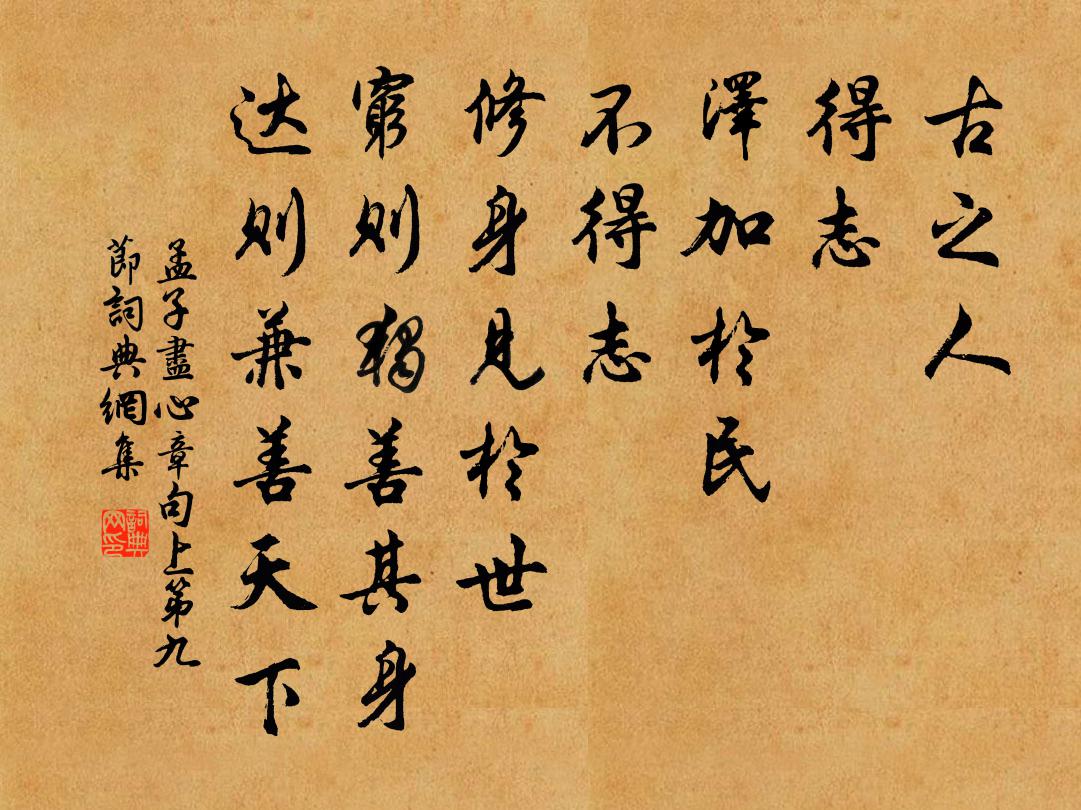 古之人
得志
澤加於民
不得志
修身見於世
窮則獨善其身
达則兼善天下
孟子盡心章句上第九
節詞典網集
詞典
网印